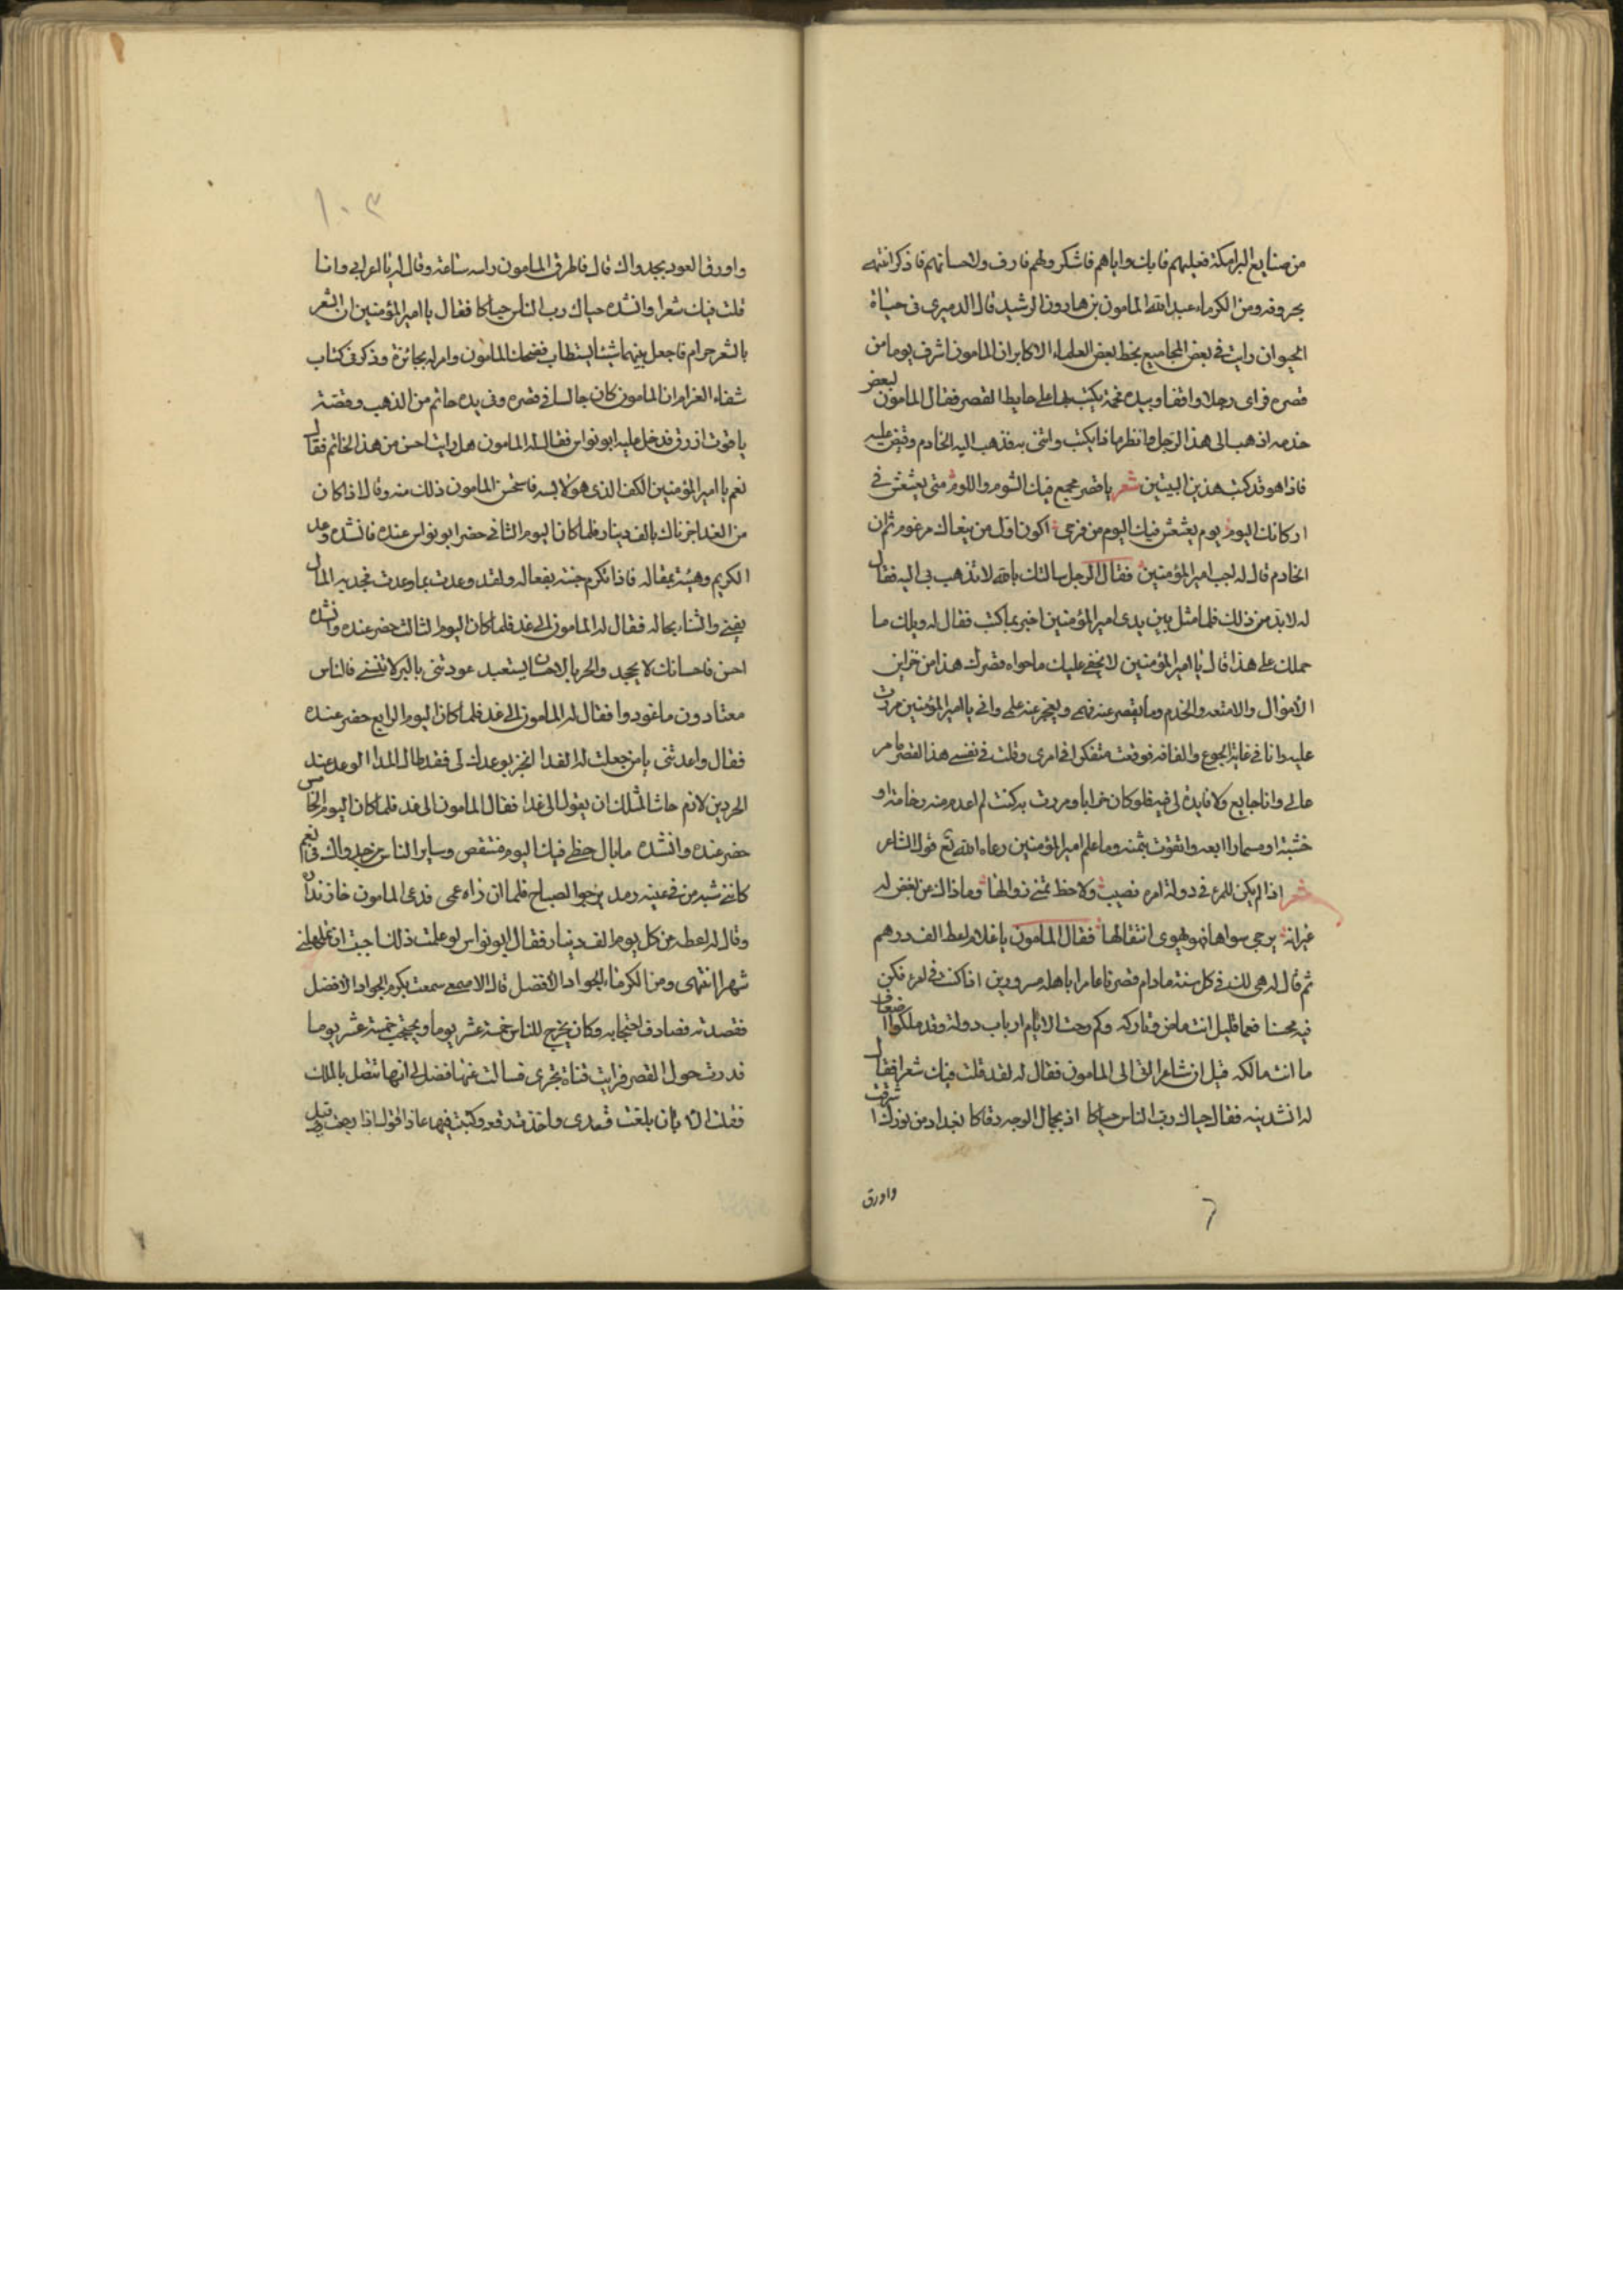 من صنايع البرامكة فعليهم فابك واياهم فاشكر ولهم فارف ولاحسانهم فاذكر انتهى
بحروفه ومن الكرماء عبد الله المامون بن هارون الرشيد قال الدميرى فى حياة
الحيوان رايت فى بعض المجاميع بخط بعض العلماء الاكابر ان المامون اشرف يوما من
قصره فراى رجلا واقفا وبيده فحمة يكتب بها على حايط القصر فقال المامون لبعض
خدمه اذهب الى هذا الرجل وانظر ما ذا يكتب واتنى به فذهب اليه الخادم وقبض عليه
فاذا هو قد كتب هذين البيتين شعر يا قصر جمع فيك الشوم واللوم متى يعشش فى
اركانك البوم يوم يعشش فيك البوم من فرحى اكون اول من ينعاك مرغوم ثم ان
الخادم قال له اجب امير المؤمنين فقال الرجل سالتك بالله لا تذهب بى اليه فقال
له لا بد من ذلك فلما مثل بين يدى امير المؤمنين اخبر بما كتب فقال له ويلك ما
حملك على هذا قال يا امير المؤمنين لا يخفى عليك ما حواه قصرك هذا من خزاين
الاموال والامتعه والخدم وما يقصر عنه فهمى ويعجز عنه علمى وانى يا امير المؤمنين مررت
عليه وانا فى غاية الجوع والفاقه فوقفت متفكرا فى امرى وقلت فى نفسى هذا القصر عامر
عالى وانا جايع ولا فايدة لى فيه فلو كان خرابا ومررت به كنت لم اعدم منه رخامة او
خشبة او مسمارا ابيعه واتقوت بثمنه وما علم امير المؤمنين رعاه الله تع قول الشاعر
شعر اذا لم يكن للمرء فى دولة امرء نصيب ولا حظ تمنى زوالها وما ذاك من بغض له
غير انه يرجى سواها فهو يهوى انتقالها فقال المامون يا غلام اعطه الف درهم
ثم قال له هى لك فى كل سنة ما دام قصرنا عامرا باهله مسرورين اذا كنت فى امر فكن
فيه محسنا فعما قليل انت ماض وتاركه وكم دحت الايام ارباب دولة وقد ملكوا اضعاف
ما انت مالكه قيل ان شاعرا اتى الى المامون فقال له لقد قلت فيك شعرا فقال
له انشدنيه فقال حياك رب الناس حياكا اذ بجمال الوجه رقاكا بغداد من نورك اشرقت
واورق
١٠٣
واورق العود بجدواك قال فاطرق المامون راسه ساعة وقال له يا اعرابى وانا
قلت فيك شعرا وانشده حياك رب الناس حياكا فقال يا امير المؤمنين ان الشعر
بالشعر حرام فاجعل بينهما شيئا يستطاب فضحك المامون وامر له بجائزة وذكر فى كتاب
شفاء الغرام ان المامون كان جالسا فى قصره وفى يده خاتم من الذهب وفصة
ياقوت ازرق فدخل عليه ابو نواس فقال له المامون هل رايت احسن من هذا الخاتم فقال
نعم يا امير المؤمنين الكف الذى هو لابسه فاستحسن المامون ذلك منه وقال اذا كان
من الغد اجزناك بالف دينار فلما كان اليوم الثانى حضر ابو نواس عنده فانشده وعد
الكريم وهبته بمقاله فاذا تكرم جئته بفعاله ولقد وعدت بما وعدت فجد به المال
يفنى والثناء بحاله فقال له المامون الى غد فلما كان اليوم الثالث حضر عنده وانشده
احسن فاحسانك لا يجحد والحر بالاحسان يستعبد عودتنى بالبر لا تنسنى فالناس
معتادون ما عودوا فقال له المامون الى غد فلما كان اليوم الرابع حضر عنده
فقال واعدتنى يا من جعلت له الفدا انجز بوعدك لى فقد طال المدا الوعد عند
الحر دين لازم حاشا لمثلك ان يقول الى غدا فقال المامون الى غد فلما كان اليوم الخامس
حضر عنده وانشده ما بال حظى فيك اليوم منتقص وساير الناس من جدواك فى نعم
كاننى شبه من فى عينه رمد يرجوا الصباح فلما ان راه عمى فدعى المامون خازنداره
وقال له اعطه من كل يوم الف دينار فقال ابو نواس لو علمت ذلك احببت ان تمهلنى
شهرا انتهى ومن الكرماء الجواد الافضل قال الاصمعى سمعت بكرم الجواد الافضل
فقصدته فصادف احتجابه وكان يخرج للناس خمسة عشر يوما ويحتجب خمسة عشر يوما
فدرت حول القصر فرايت قناة تجرى فسالت عنها فقيل لى انها تتصل بالملك
فقلت الان بلغت قصدى واخذت رقعه وكتبت فيها ماذا اقول اذا رجعت وقيل